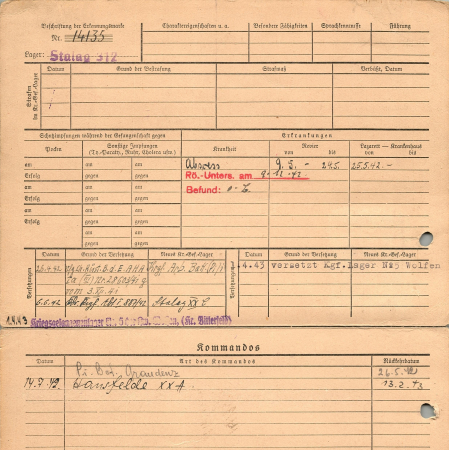 Beschriftung der Erkennungsmarke
Nr. 14135
Lager: Stalag 312
Charaktereigenschaften u. a.
Besondere Fähigkeiten
Sprachkenntnisse
Führung
Strafen im Kr.-Gef.-Lager
Datum
Grund der Bestrafung
Strafmaß
Verbüßt, Datum
Schutzimpfungen während der Gefangenschaft gegen
Erkrankungen
Pocken
Sonstige Impfungen
(Ty-Paraty., Ruhr, Cholera usw.)
Krankheit
Revier
von bis
Lazarett — Krankenhaus
von bis
gegen gegen
am am am
Erfolg Erfolg Erfolg
am am am
Erfolg Erfolg Erfolg
am am am
Erfolg Erfolg Erfolg
am am am
Erfolg Erfolg Erfolg
Abszess 9.5. - 24.5. 25.5.42. -
Rö.-Unters. am 9.12.42.
Befund: o.B.
Versetzungen
Datum
Grund der Versetzung
Neues Kr.-Gef.-Lager
Datum
Grund der Versetzung
Neues Kr.-Gef.-Lager
26.4.42
vom 3.
6.6.42 Stalag XX C
.4.43 versetzt Kgf.Lager Nr5 Wolfen
(Kr. Bitterfeld)
Kommandos
Datum
Art des Kommandos
Rückkehrdatum
Graudenz 26.5.42
Hansfelde XXA 13.2.43